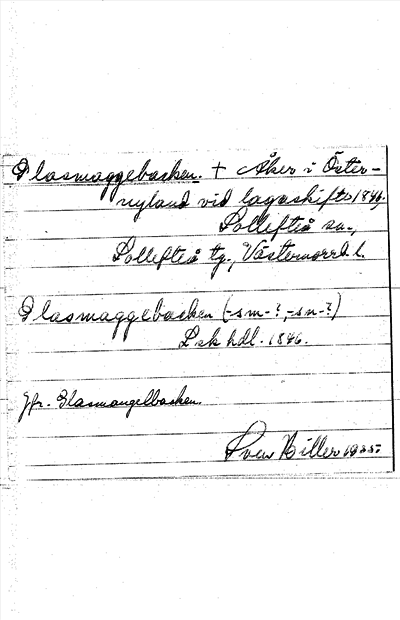 Glasmaggebacken. + Åker i Öster-
nyland vid lagaskifte 1846.
Sollefteå sn.,
Sollefteå tg., Västernorrl. l.
Glasmaggebacken (-sm-?, -sn-?)
Lsk hdl. 1846.
Jfr. Glasmangelbacken.
Sven Hiller 1935